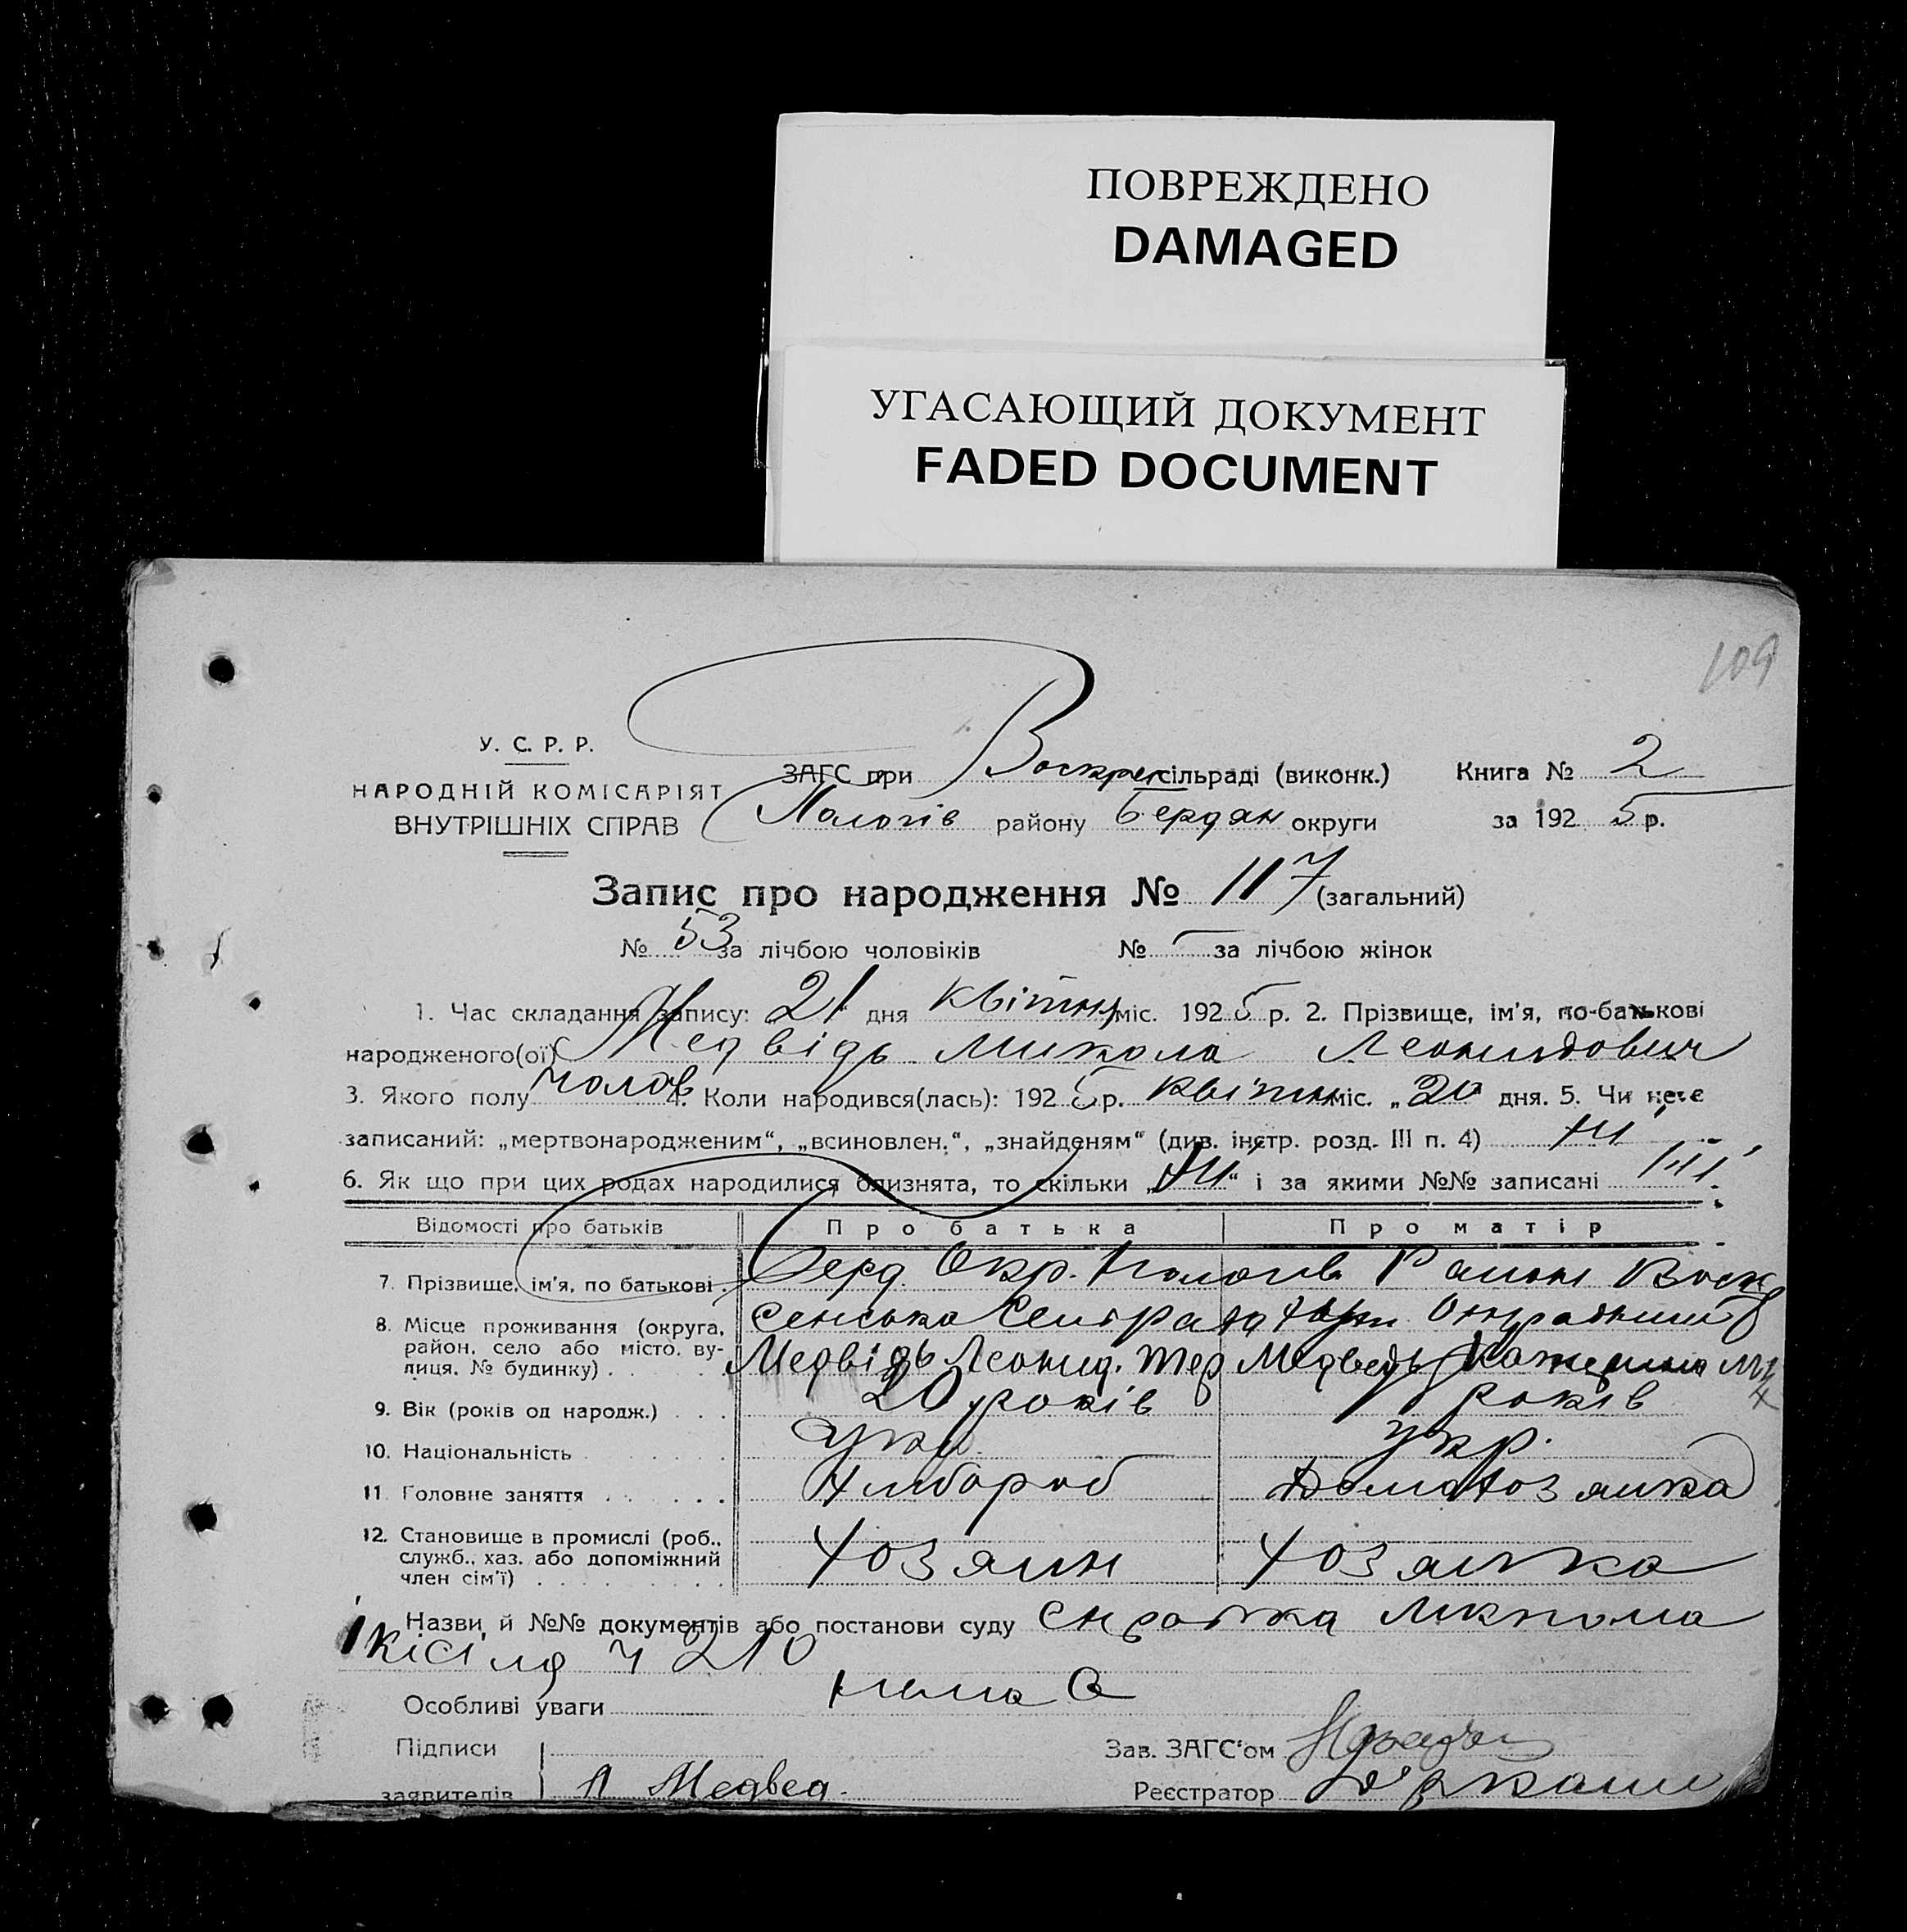 ПОВРЕЖДЕНО
DAMAGED
УГАСАЮЩИЙ ДОКУМЕНТ
FADED DOCUMENT
109
У. С. Р. Р.
НАРОДНІЙ КОМІСАРІЯТ
ВНУТРІШНІХ СПРАВ
ЗАГС при Воскресен сільраді (виконк.) Книга № 2
Пологів району Бердян округи за 1925 р.
Запис про народження № 117 (загальний)
№ 53 за лічбою чоловіків № — за лічбою жінок
1. Час складання запису: 21 дня квітня міс. 1925 р. 2. Прізвище, ім'я, по-батькові
народженого(ої) Медвідь Микола Леонидович
3. Якого полу чолов 4. Коли народився(лась): 1925 р. квітня міс. „20" дня. 5. Чи не є
записаний: „мертвонародженим", „всиновлен.", „знайденям" (див. інстр. розд. III п. 4) ні
6. Як що при цих родах народилися близнята, то скільки „ні" і за якими №№ записані ні
Відомості про батьків Про батька Про матір
7. Прізвище, ім'я, по батькові Берд. Окр. Пологів Район Воскре
8. Місце проживання (округа,
район, село або місто, ву-
лиця, № будинку) сенська Сельрада
Медвідь Леонид. Медведь
9. Вік (років од народж.) 20 років років
10. Національність Укр. Укр.
11. Головне заняття Хлібороб Домахозяйка
12. Становище в промислі (роб.,
служб., хаз. або допоміжний
член сім'ї) Хозяин Хозяйка
Назви й №№ документів або постанови суду
ч 210
Особливі уваги нема
Підписи Зав. ЗАГС'ом
заявителів Л Медвед Реєстратор